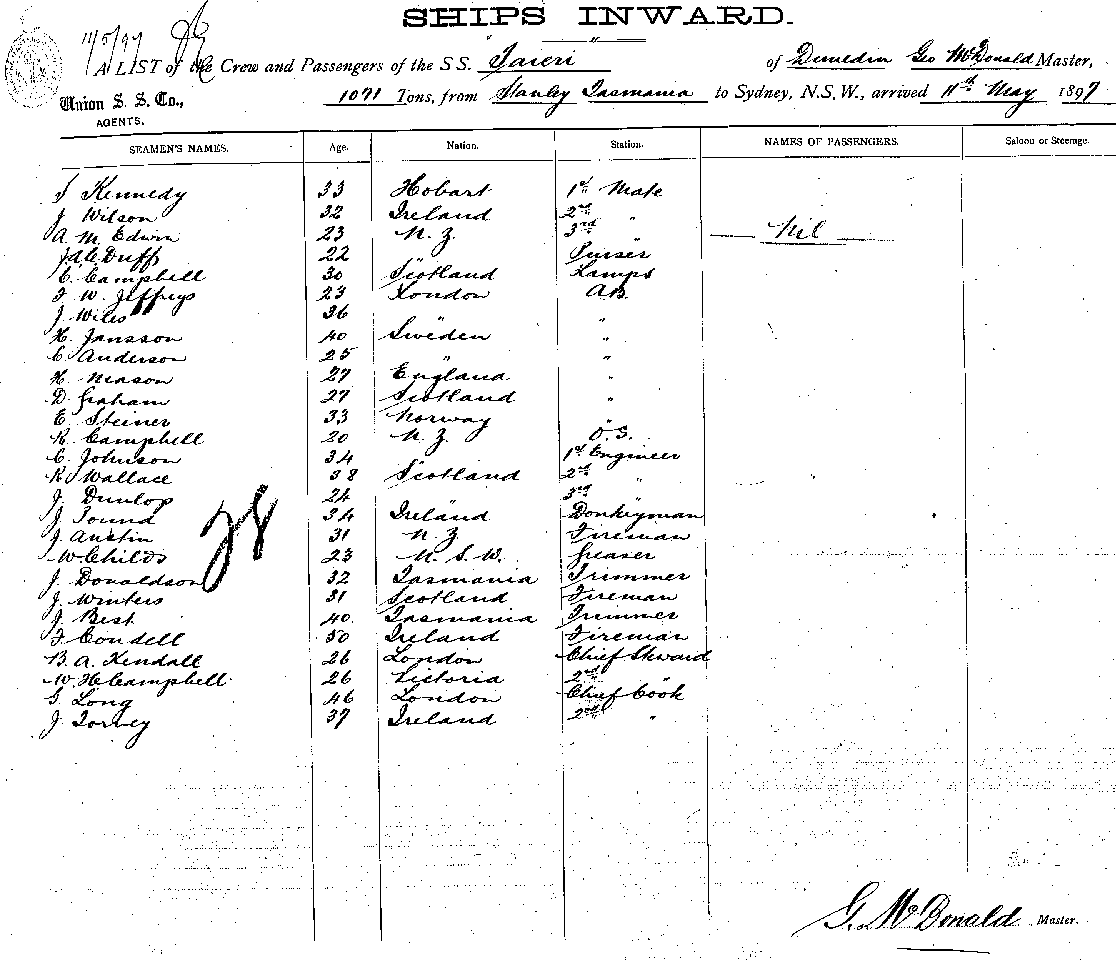 SHIPS INWARD.
11/5/97
A LIST of the Crew and Passengers of the S.S. Taieri of Dunedin Geo McDonald Master,
Union S. S. Co., AGENTS. 1071 Tons, from Stanley Tasmania to Sydney, N.S.W., arrived 11th May 1897
SEAMEN'S NAMES. Age. Nation. Station. NAMES OF PASSENGERS. Saloon or Steerage.
Kennedy 33 Hobart 1st Mate
J Wilson 32 Ireland 2nd "
A. M. Edwin 23 N. Z. 3rd " Nil
Duff 22 " Purser
C. Campbell 30 Scotland Lamps
F. W. Jeffreys 23 London A.B.
J. Wiles 36 " "
H. Jansson 40 Sweden "
C. Anderson 25 " "
H. Neason 27 England "
D. Graham 27 Scotland "
E. Steiner 33 Norway "
R. Campbell 20 N. Z. O.S.
C. Johnson 34 " 1st Engineer
R. Wallace 38 Scotland 2nd "
J. Dunlop 24 " 3rd "
J. Tound 34 Ireland Donkeyman
J. Austin 31 N. Z. Fireman
W. Childs 23 N. S. W. Greaser
J. Donaldson 32 Tasmania Trimmer
J. Winters 31 Scotland Fireman
J. Best 40. Tasmania Trimmer
F Condell 50 Ireland Fireman
B. A. Kendall 26 London Chief Steward
W. H. Campbell 26 Victoria 2nd "
G. Long 46 London Chief Cook
J. Torney 37 Ireland 2nd "
28
G. McDonald Master.